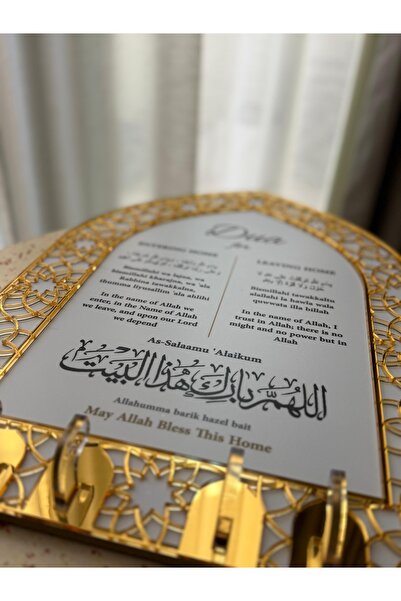 Dua
for
ENTERING HOME
Bismillahi wa lajna, wa
Bismillahi kharajna, wa 'ala
Rabbina tawakkalna,
thumma liyusallim ala ahlihi
In the name of Allah we
enter, in the Name of Allah
we leave, and upon our Lord
we depend
LEAVING HOME
Bismillahi tawakkaltu
alallahi la hawla wala
quwwata illa billah
In the name of Allah, I
trust in Allah; there is no
might and no power but in
Allah
As-Salaamu 'Alaikum
اللهم بارك هذا البيت
Allahumma barik hazel bait
May Allah Bless This Home